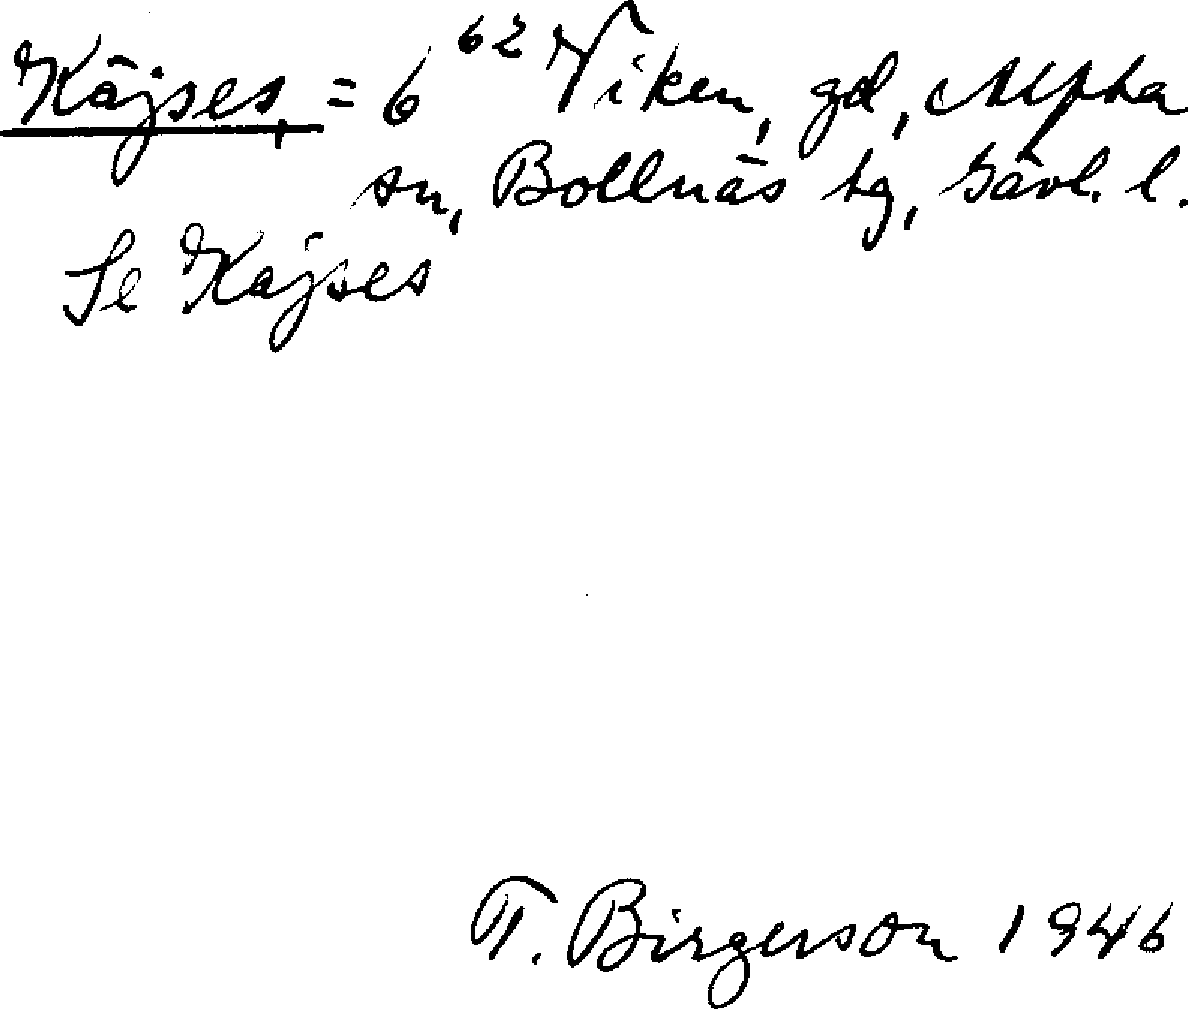 Käjses, = 6 62 Viken, gd, Alfta
sn, Bollnäs tg, Gävl. l.
Se Kajses
T. Birgerson 1946